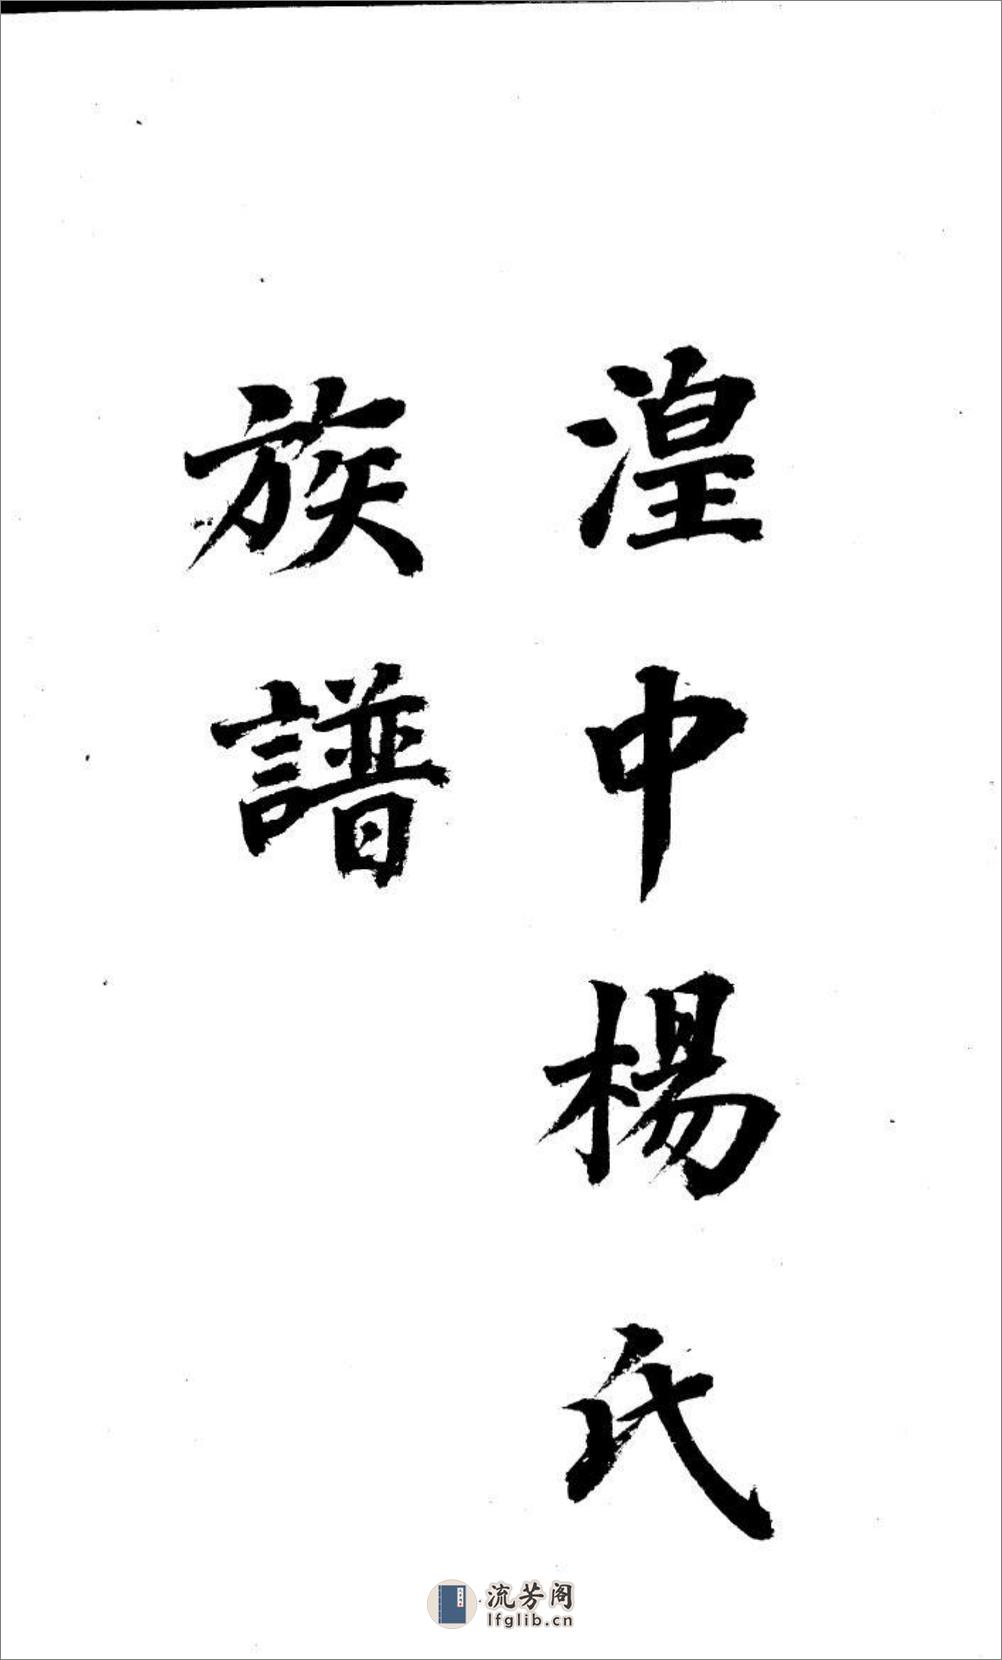 湟中楊氏
族譜
流芳阁
lfglib.cn